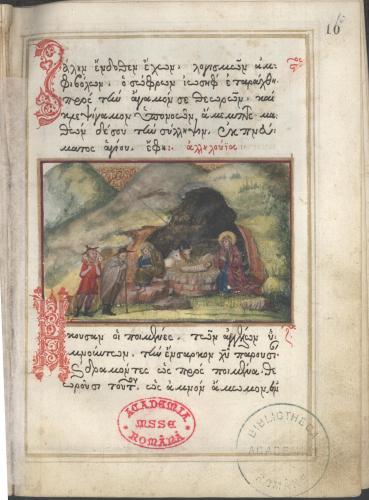 10
Ζάλην ἔνδοθεν ἔχων, λογισμῶν ἀμ-
φιβόλων, ὁ σώφρων ἰωσὴφ ἐταράχθη,
πρὸς τὴν ἄγαμόν σε θεωρῶν, καὶ
κλεψίγαμον ὑπονοῶν, ἄμεμπτε· μα-
θὼν δέ σου τὴν σύλληψιν, ἐκ πνεύ-
ματος ἁγίου, ἔφη· ἀλληλούϊα:
Ἤκουσαν οἱ ποιμένες, τῶν ἀγγέλων ὑ-
μνούντων, τὴν ἔνσαρκον χῦ παρουσί-
δραμόντες ὡς πρὸς ποιμένα θε
ωροῦσι τοῦτ, ὡς ἀμνὸν ἄμωμον, ἐν
ACADEMIA
MSSE
ROMÂNĂ
BIBLIOTHECA
ACADEM
ROMÂNE